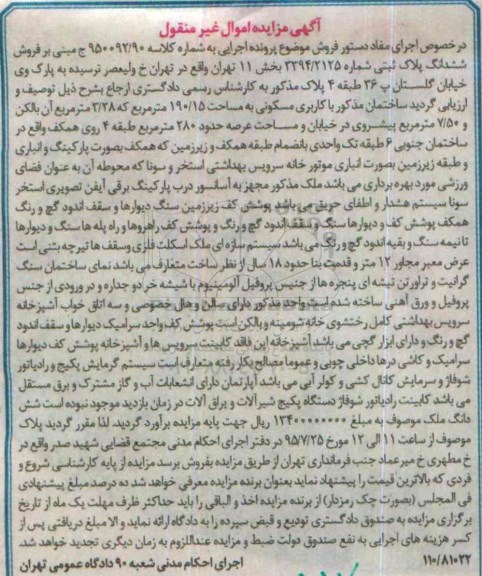 آگهی مزایده اموال غیر منقول
در خصوص اجرای مفاد دستور فروش موضوع پرونده اجرایی به شماره کلاسه ۹۵۰۰۹۲/۹۰ ج مبنی بر فروش
ششدانگ پلاک ثبتی شماره ۳۳۹۴/۲۱۲۵ بخش ۱۱ تهران واقع در تهران خ ولیعصر نرسیده به پارک وی
خیابان گلستان پ ۳۶ طبقه ۴ پلاک مذکور به کارشناس رسمی دادگستری ارجاع بشرح ذیل توصیف و
ارزیابی گردید ساختمان مذکور با کاربری مسکونی به مساحت ۱۹۰/۱۵ مترمربع که ۳/۲۸ مترمربع آن بالکن
و ۷/۵۰ مترمربع پیشروی در خیابان و مساحت عرصه حدود ۲۸۰ مترمربع طبقه ۴ روی همکف واقع در
ساختمان جنوبی ۶ طبقه تک واحدی بانضمام طبقه همکف و زیرزمین که همکف بصورت پارکینگ و انباری
و طبقه زیرزمین بصورت انباری موتور خانه سرویس بهداشتی استخر و سونا که محوطه آن به عنوان فضای
ورزشی مورد بهره برداری می باشد ملک مذکور مجهز به آسانسور درب پارکینگ برقی آیفن تصویری استخر
سونا سیستم هشدار و اطفای حریق می باشد پوشش کف زیرزمین سنگ دیوارها و سقف اندود گچ و رنگ
همکف پوشش کف و دیوارها سنگ و سقف اندود گچ و رنگ و پوشش کف راهروها و راه پله ها سنگ و دیوارها
تا نیمه سنگ و بقیه اندود گچ و رنگ می باشد سیستم سازه ای ملک اسکلت فلزی و سقف ها تیرچه بتنی است
عرض معبر مجاور ۱۲ متر و قدمت بنا حدود ۱۸ سال از نظر ساخت متعارف می باشد نمای ساختمان سنگ
گرانیت و تراورتن تیشه ای پنجره ها از جنیس پروفیل آلومینیوم با شیشه خر دو جداره و در ورودی از جنس
پروفیل و ورق آهنی ساخته شده است واحد مذکور دارای سالن و هال خصوصی و سه اتاق خواب آشپزخانه
سرویس بهداشتی کامل رختشوی خانه شومینه و بالکن است پوشش کف واحد سرامیک دیوارها و سقف اندود
گچ و رنگ و دارای ابزار گچی می باشد آشپزخانه این فاقد کابینت سرویس ها و آشپزخانه پوشش کف دیوارها
سرامیک و کاشی درها داخلی چوبی و عموما مصالح بکار رفته متعارف است سیستم گرمایش پکیج و رادیاتور
شوفاژ و سرمایش کانال کشی و کولر آبی می باشد آپارتمان دارای انشعابات آب و گاز مشترک و برق مستقل
می باشد کابینت رادیاتور شوفاژ دستگاه پکیج شیرآلات و یراق آلات در زمان بازدید موجود نبوده است شش
دانگ ملک موصوف به مبلغ ۱۳۴۰۰۰۰۰۰۰۰ ریال جهت پایه مزایده برآورد گردید. لذا مقرر گردید پلاک
موصوف از ساعت ۱۱ الی ۱۲ مورخ ۹۵/۷/۲۵ در دفتر اجرای احکام مدنی مجتمع قضایی شهید صدر واقع در
خ مطهری خ میرعماد جنب فرمانداری تهران از طریق مزایده بفروش برسد مزایده از پایه کارشناسی شروع و
فردی که بالاترین قیمت را پیشنهاد نماید بعنوان برنده مزایده معرفی خواهد شد ده درصد مبلغ پیشنهادی
فی المجلس (بصورت چک رمزدار) از برنده مزایده اخذ و الباقی را باید حداکثر ظرف مهلت یک ماه از تاریخ
برگزاری مزایده به صندوق دادگستری تودیع و قبض سپرده را به دادگاه ارائه نماید و الا مبلغ دریافتی پس از
کسر هزینه های اجرایی به نفع صندوق دولت ضبط و مزایده عنداللزوم به زمان دیگری تجدید خواهد شد.
۱۱۰/۸۱۰۲۲ اجرای احکام مدنی شعبه ۹۰ دادگاه عمومی تهران